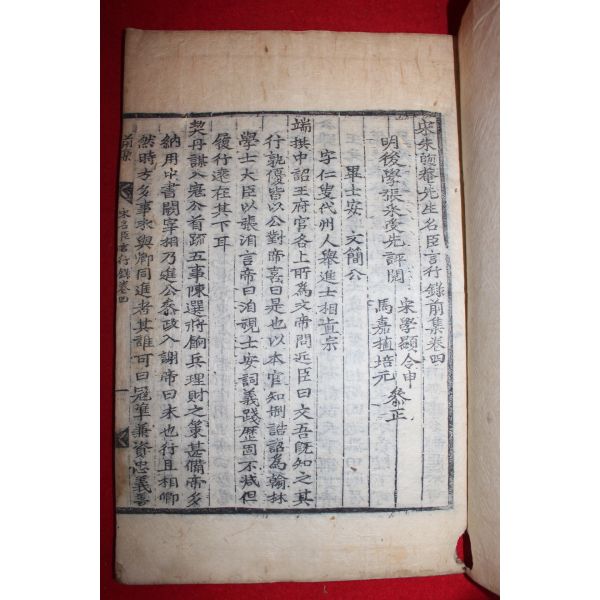 宋朱晦菴先生名臣言行錄前集卷四
明後學張采受先評閱
宋學顯令申
馬嘉植培元 叅正
畢士安 文簡公
字仁叟代州人舉進士相眞宗
端拱中詔王府官各上所爲文帝問近臣曰文吾旣知之其
行孰優皆以公對帝喜曰是也以本官知制誥詔爲翰林
學士大臣以張洎言帝曰洎視士安詞義踐歷固不减但
履行遠在其下耳
契丹謀入寇公首疏五事陳選將餉兵理財之策甚備帝多
納用中書闕宰相乃進公叅政入謝帝曰未也行且相卿
然時方多事求與卿同進者其誰可曰冠準兼資忠義善
前集
宋名臣言行錄卷四
一